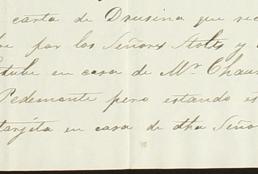 carta de Drusina que re
por los Señores Stolts y
estube en casa de Mr Chau
Pedemonte pero estando es
tarjeta en casa de dha Seño